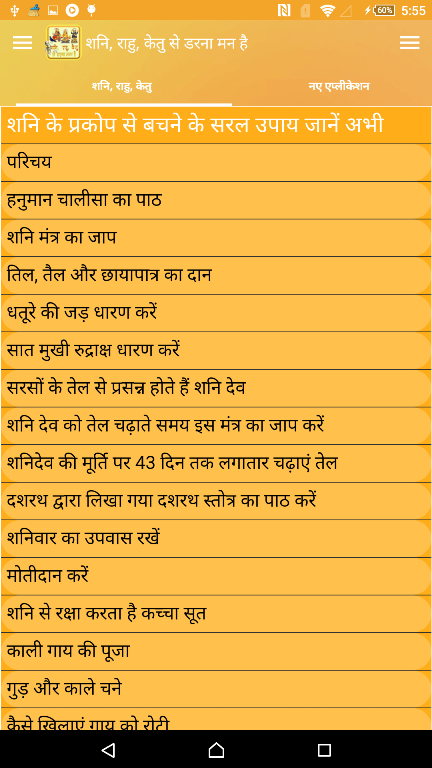 60% 5:55
शनि, राहु, केतु से डरना मन है
शनि, राहु, केतु
नए एप्लीकेशन
शनि के प्रकोप से बचने के सरल उपाय जानें अभी
परिचय
हनुमान चालीसा का पाठ
शनि मंत्र का जाप
तिल, तैल और छायापात्र का दान
धतूरे की जड़ धारण करें
सात मुखी रुद्राक्ष धारण करें
सरसों के तेल से प्रसन्न होते हैं शनि देव
शनि देव को तेल चढ़ाते समय इस मंत्र का जाप करें
शनिदेव की मूर्ति पर 43 दिन तक लगातार चढ़ाएं तेल
दशरथ द्वारा लिखा गया दशरथ स्तोत्र का पाठ करें
शनिवार का उपवास रखें
मोतीदान करें
शनि से रक्षा करता है कच्चा सूत
काली गाय की पूजा
गुड़ और काले चने
कैसे खिलाएं गाय को रोटी